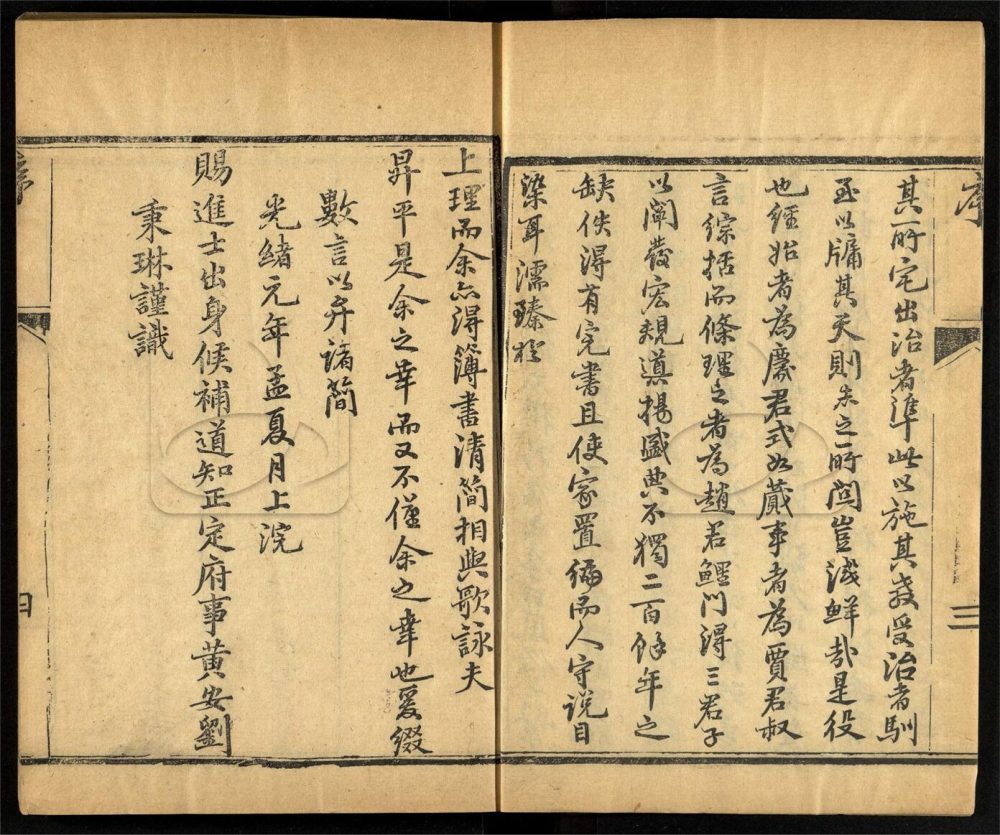 序
三
其所宅出治者準此以施其教受治者馴
至以牖其天則志之所關豈淺鮮哉是役
也經始者為慶君式如蕆事者為賈君叔
言綜括而條理之者為趙君鱷門得三君子
以闡發宏規導揚盛典不獨二百餘年之
缺佚得有完書且使家置編而人守說目
染耳濡臻於
上理而余亦得簿書清簡相與歌詠夫
昇平是余之幸而又不僅余之幸也爰綴
數言以弁諸簡
光緒元年孟夏月上浣
賜進士出身候補道知正定府事黃安劉
秉琳謹識
序
四